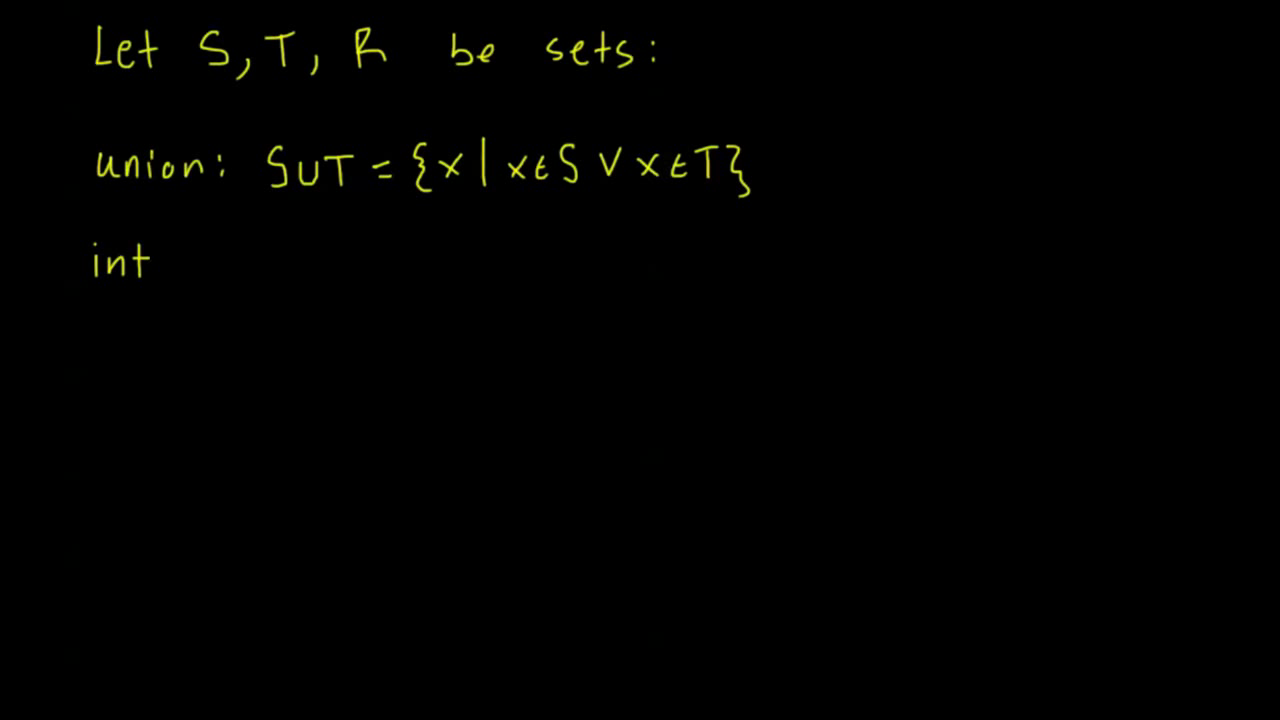 Let S, T, R be sets:
union: S∪T = {x | x∈S ∨ x∈T}
int